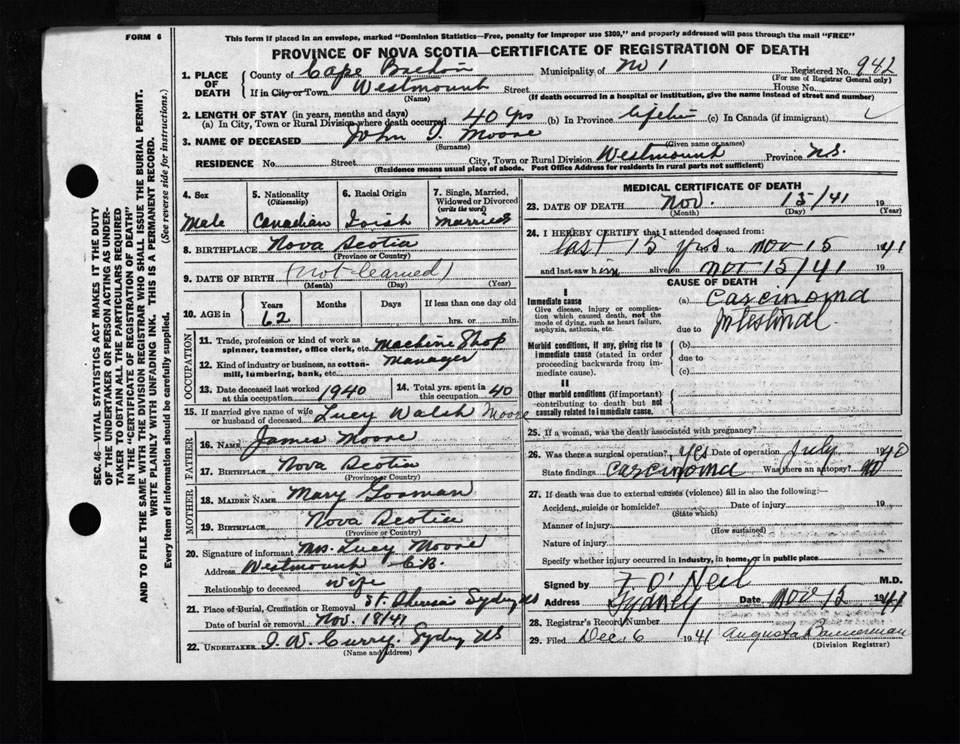 FORM 6
This form if placed in an envelope, marked "Dominion Statistics—Free, penalty for improper use $300," and properly addressed will pass through the mail "FREE"
PROVINCE OF NOVA SCOTIA—CERTIFICATE OF REGISTRATION OF DEATH
SEC. 46—VITAL STATISTICS ACT MAKES IT THE DUTY
OF THE UNDERTAKER OR PERSON ACTING AS UNDER-
TAKER TO OBTAIN ALL THE PARTICULARS REQUIRED
IN THE "CERTIFICATE OF REGISTRATION OF DEATH"
AND TO FILE THE SAME WITH THE DIVISION REGISTRAR WHO SHALL ISSUE THE BURIAL PERMIT.
WRITE PLAINLY WITH UNFADING INK. THIS IS A PERMANENT RECORD.
Every item of information should be carefully supplied. (See reverse side for instructions.)
1. PLACE OF DEATH
County of Cape Breton Municipality of No 1 Registered No. 942
(For use of Registrar General only)
If in City or Town Westmount Street House No.
(Name) (If death occurred in a hospital or institution, give the name instead of street and number)
2. LENGTH OF STAY (in years, months and days)
(a) In City, Town or Rural Division where death occurred 40 Yrs (b) In Province (c) In Canada (if immigrant)
3. NAME OF DECEASED John Moore
(Surname) (Given name or names)
RESIDENCE No. Street City, Town or Rural Division Westmount Province N.S.
(Residence means usual place of abode. Post Office Address for residents in rural parts not sufficient)
4. Sex Male
5. Nationality (Citizenship) Canadian
6. Racial Origin Irish
7. Single, Married, Widowed or Divorced (write the word) Married
8. BIRTHPLACE Nova Scotia
(Province or Country)
9. DATE OF BIRTH (not learned)
(Month) (Day) (Year)
10. AGE in Years Months Days If less than one day old
62 hrs. or min.
OCCUPATION
11. Trade, profession or kind of work as spinner, teamster, office clerk, etc. Machine Shop
Manager
12. Kind of industry or business, as cotton-mill, lumbering, bank, etc.
13. Date deceased last worked at this occupation 1940
14. Total yrs. spent in this occupation 40
15. If married give name of wife or husband of deceased Lucy Walsh Moore
FATHER
16. NAME James Moore
17. BIRTHPLACE Nova Scotia
(Province or Country)
MOTHER
18. MAIDEN NAME Mary Gosman
19. BIRTHPLACE Nova Scotia
(Province or Country)
20. Signature of informant Mrs. Lucy Moore
Address Westmount C.B.
Relationship to deceased Wife
21. Place of Burial, Cremation or Removal St. Theresa Sydney NS
Date of burial or removal Nov. 18/41
22. UNDERTAKER W. Curry. Sydney NS
(Name and address)
MEDICAL CERTIFICATE OF DEATH
23. DATE OF DEATH Nov. 15/41 19
(Month) (Day) (Year)
24. I HEREBY CERTIFY that I attended deceased from:
last 15 yrs to Nov 15 1941
and last saw him alive on Nov 15/41 19
CAUSE OF DEATH
I
Immediate cause
Give disease, injury or complication which caused death, not the mode of dying, such as heart failure, asphyxia, asthenia, etc.
(a) Carcinoma
due to Intestinal
Morbid conditions, if any, giving rise to immediate cause (stated in order proceeding backwards from immediate cause).
(b)
due to
(c)
II
Other morbid conditions (if important) contributing to death but not causally related to immediate cause.
25. If a woman, was the death associated with pregnancy?
26. Was there a surgical operation? Yes Date of operation July 1940
State findings Carcinoma Was there an autopsy? No
27. If death was due to external causes (violence) fill in also the following:—
Accident, suicide or homicide? Date of injury 19
(State which)
Manner of injury
(How sustained)
Nature of injury
Specify whether injury occurred in industry, in home, or in public place
Signed by O'Neil M.D.
Address Sydney Date Nov 15 1941
28. Registrar's Record Number
29. Filed Dec. 6 1941 Augusta Bannerman
(Division Registrar)